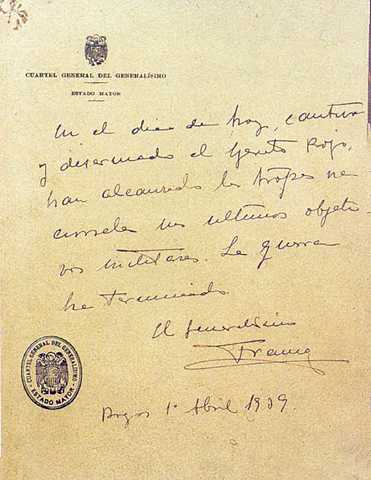 CUARTEL GENERAL DEL GENERALÍSIMO
ESTADO MAYOR
En el día de hoy, cautivo
y desarmado el Ejército Rojo,
han alcanzado las tropas na-
cionales sus últimos objeti-
vos militares. La guerra
ha terminado.
El Generalísimo
Franco
Burgos 1º Abril 1939.
CUARTEL GENERAL DEL GENERALISIMO
ESTADO MAYOR